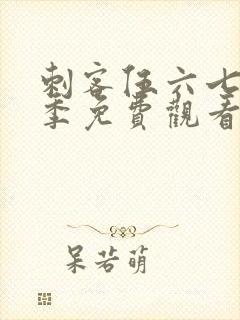 刺客伍六七
季免費觀看
呆若萌